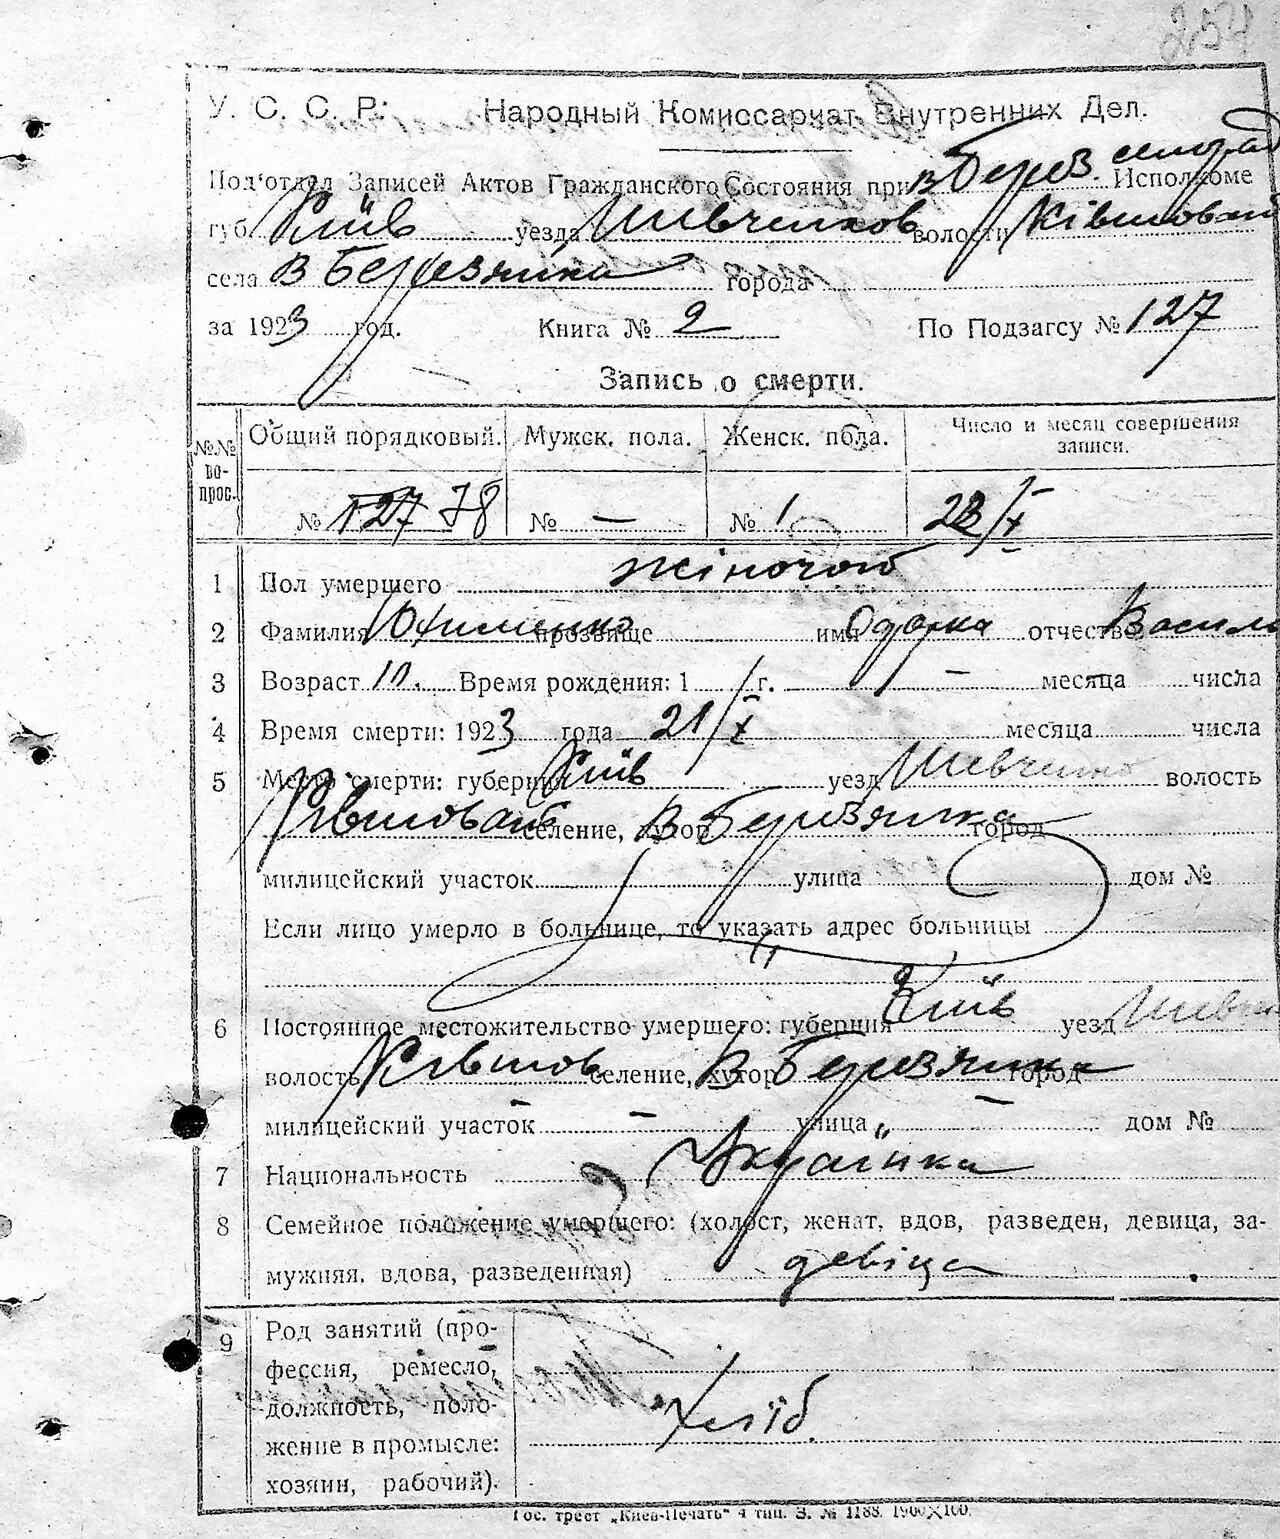 254
У. С. С. Р. Народный Комиссариат Внутренних Дел.
Под‘отдел Записей Актов Гражданского Состояния при В Берез. сельрад Исполкоме
губ. Київ уезда Шевченков волости Ківшоват
села В Березянка города
за 1923 год. Книга № 2 По Подзагсу № 127
Запись о смерти.
№№ во-прос. Общий порядковый. Мужск. пола. Женск. пола. Число и месяц совершения записи.
№ 127 78 № — № 1 23/X
1 Пол умершего жіночоі
2 Фамилия Юхименко прозвище имя Одарка отчество Василь
3 Возраст Время рождения: 1 г. — месяца числа
4 Время смерти: 1923 года 21/X месяца числа
5 Место смерти: губерния Київ уезд Шевченко волость
Ківшоват селение, хутор В Березянка город
милицейский участок улица дом №
Если лицо умерло в больнице, то указать адрес больницы
6 Постоянное местожительство умершего: губерния Київ уезд Шевч
волость Ківшов селение, хутор В Березянка город
милицейский участок — улица — дом №
7 Национальность Українка
8 Семейное положение умершего: (холост, женат, вдов, разведен, девица, за-
мужняя, вдова, разведенная) девіца
9 Род занятий (про-
фессия, ремесло,
должность, поло-
жение в промысле:
хозяин, рабочий). Хліб.
Гос. трест „Киев-Печать“ 4 тип. З. № 1188. 1900×100.